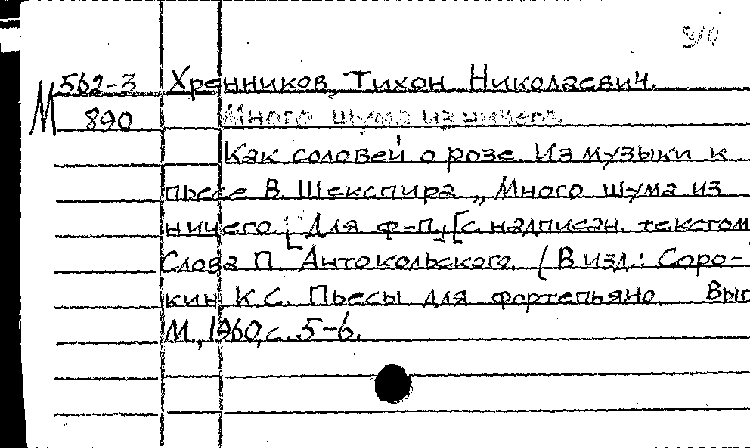 М 562-3 Хренников, Тихон Николаевич.
890 Много шума из ничего.
Как соловей о розе. Из музыки к
пьесе В. Шекспира „Много шума из
ничего. [Для ф-п.] [с надписан. текстом
Слова П. Антокольского. (В изд.: Соро-
кин К.С. Пьесы для фортепьяно. Вып
М., 1960, с. 5-6.